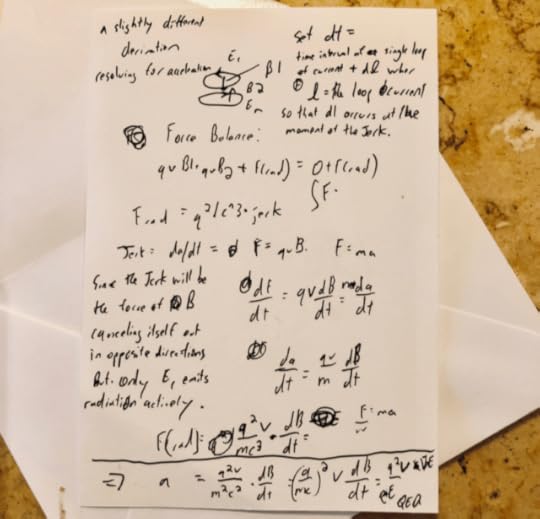 a slightly different
derivation
resolving for acceleration
E, B1
B2
Em
set dt =
time interval of a single loop
of current + dl wher
l = the loop current
so that dl occurs at the
moment of the Jerk.
Force Balance:
qv B1, qvB2 + F(rad) = 0 + F(rad)
∫F.
Frad = q^2/c^3 · jerk
Jerk = da/dt = F = qvB. F = ma
Since the Jerk will be
the force of B
canceling itself out
in opposite directions
But only E, emits
radiation actively.
dF/dt = qv dB/dt = m da/dt
da/dt = qv/m dB/dt
F(rad) = q^2 v/mc^3 · dB/dt = F = ma
=> a = q^2 v/m^2c^2 · dB/dt = (q/mc)^2 v dB/dt = q^2 V × ∇E
QED